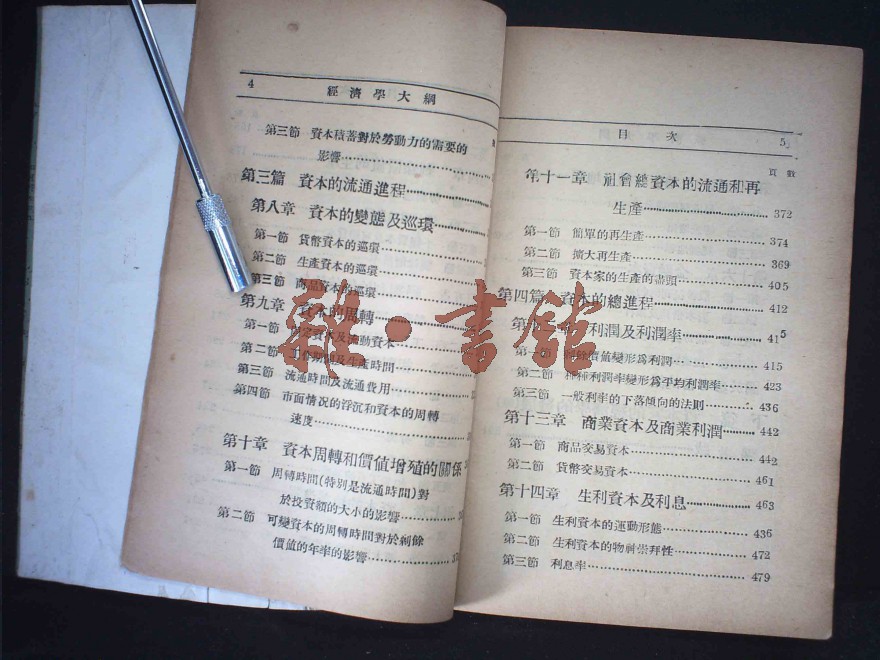 4
經濟學大綱
第三節 資本積蓄對於勞動力的需要的
影響
第三篇 資本的流通進程
第八章 資本的變態及巡環
第一節 貨幣資本的巡環
第二節 生產資本的巡環
第三節 商品資本的巡環
第九章 資本的周轉
第一節 資本及流動資本
第二節 工作期間及生產時間
第三節 流通時間及流通費用
第四節 市面情況的浮沉和資本的周轉
速度
第十章 資本周轉和價值增殖的關係
第一節 周轉時間(特別是流通時間)對
於投資額的大小的影響
第二節 可變資本的周轉時間對於剩餘
價值的年率的影響
目次
5
頁數
第十一章 社會總資本的流通和再
生產 372
第一節 簡單的再生產 374
第二節 擴大再生產 369
第三節 資本家的生產的盡頭 405
第四篇 資本的總進程 412
第十二章 利潤及利潤率 415
第一節 剩餘價值變形爲利潤 415
第二節 種種利潤率變形爲平均利潤率 423
第三節 一般利率的下落傾向的法則 436
第十三章 商業資本及商業利潤 442
第一節 商品交易資本 442
第二節 貨幣交易資本 461
第十四章 生利資本及利息 463
第一節 生利資本的運動形態 436
第二節 生利資本的物神崇拜性 472
第三節 利息率 479
雜·書館